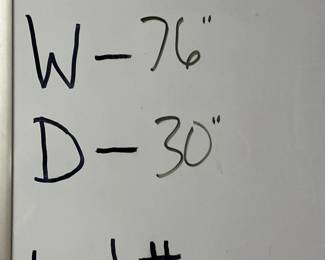 W - 76"
D - 30"